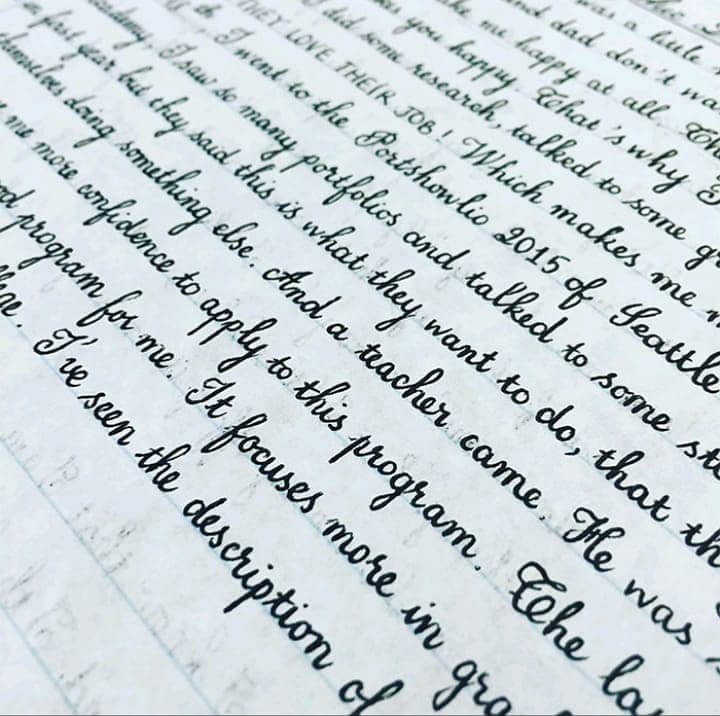 was a little
and dad don't wa
me happy at all. Th
you happy. That's why I
did some research, talked to some gr
THEY LOVE THEIR JOB! Which makes me
th, I went to the Portshowlio 2015 of Seattle
I saw so many portfolios and talked to some stu
first year but they said this is what they want to do, that th
themselves doing something else. And a teacher came. He was
me more confidence to apply to this program. The la
program for me. It focuses more in gra
I've seen the description of